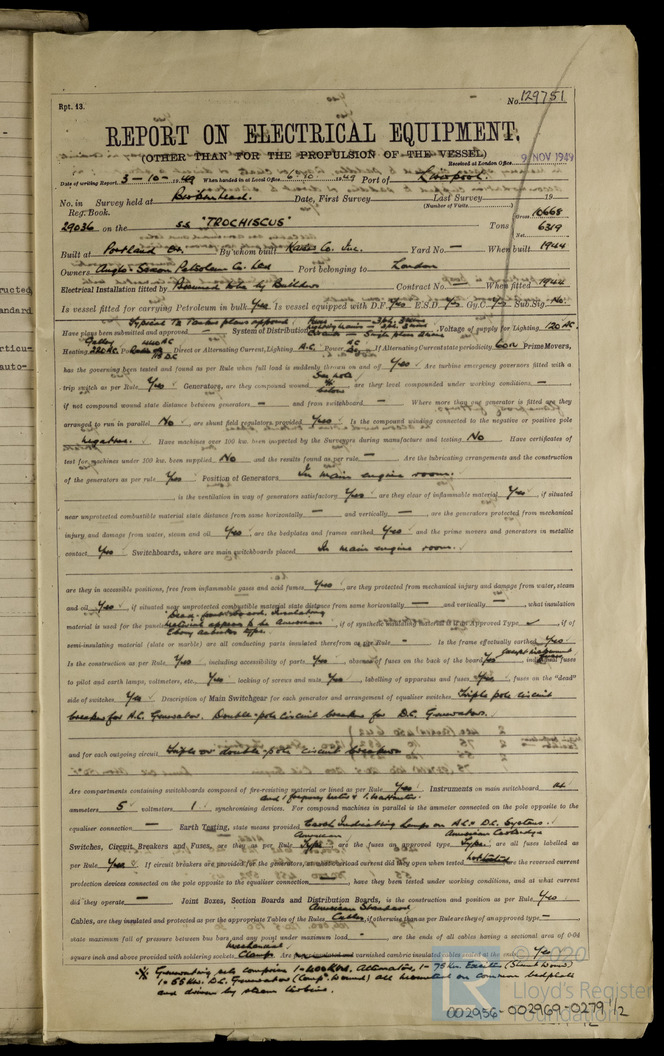 Rpt. 13.
No. 129751
REPORT ON ELECTRICAL EQUIPMENT.
(OTHER THAN FOR THE PROPULSION OF THE VESSEL)
9 NOV 1949
Received at London Office
Date of writing Report 3-10-1949 When handed in at Local Office 6/10 1949 Port of Liverpool.
No. in Survey held at Birkenhead. Date, First Survey Last Survey 19
Reg. Book. (Number of Visits)
29036 on the S.S "TROCHISCUS" Tons Gross 10668 Net 6319
Built at Portland Or. By whom built Kaiser Co. Inc. Yard No. — When built 1944
Owners Anglo-Saxon Petroleum Co. Ltd Port belonging to London
Electrical Installation fitted by Presumed to be by Builders Contract No. — When fitted 1944
Is vessel fitted for carrying Petroleum in bulk Yes Is vessel equipped with D.F. Yes E.S.D. Yes Gy.C. Yes Sub.Sig. No.
Have plans been submitted and approved System of Distribution Voltage of supply for Lighting 120 AC
Heating 220 AC Power Direct or Alternating Current, Lighting A.C. Power If Alternating Current state periodicity 60 Prime Movers,
has the governing been tested and found as per Rule when full load is suddenly thrown on and off Yes Are turbine emergency governors fitted with a
trip switch as per Rule Yes Generators, are they compound wound See note % below are they level compounded under working conditions —
if not compound wound state distance between generators — and from switchboard — Where more than one generator is fitted are they
arranged to run in parallel No are shunt field regulators provided Yes Is the compound winding connected to the negative or positive pole
negative. Have machines over 100 kw. been inspected by the Surveyors during manufacture and testing No Have certificates of
test for machines under 100 kw. been supplied No and the results found as per rule — Are the lubricating arrangements and the construction
of the generators as per rule Yes Position of Generators In main engine room.
is the ventilation in way of generators satisfactory Yes are they clear of inflammable material Yes, if situated
near unprotected combustible material state distance from same horizontally — and vertically —, are the generators protected from mechanical
injury and damage from water, steam and oil Yes are the bedplates and frames earthed Yes and the prime movers and generators in metallic
contact Yes Switchboards, where are main switchboards placed In main engine room.
are they in accessible positions, free from inflammable gases and acid fumes Yes, are they protected from mechanical injury and damage from water, steam
and oil Yes, if situated near unprotected combustible material state distance from same horizontally — and vertically —, what insulation
material is used for the panels Dead front board. Insulating material appears to be American Ebony asbestos type. if of synthetic insulating material is it an Approved Type, if of
semi-insulating material (slate or marble) are all conducting parts insulated therefrom as per Rule - Is the frame effectually earthed Yes
Is the construction as per Rule Yes including accessibility of parts Yes, absence of fuses on the back of the board Yes except instrument fuses individual fuses
to pilot and earth lamps, voltmeters, etc. Yes locking of screws and nuts Yes, labelling of apparatus and fuses Yes, fuses on the "dead"
side of switches Yes Description of Main Switchgear for each generator and arrangement of equaliser switches Triple pole circuit
breaker for A.C. Generator. Double pole circuit breaker for D.C. Generators.
and for each outgoing circuit Triple or double pole circuit breakers
Are compartments containing switchboards composed of fire-resisting material or lined as per Rule Yes Instruments on main switchboard 14
ammeters 5 voltmeters 1 synchronising devices. For compound machines in parallel is the ammeter connected on the pole opposite to the
equaliser connection — Earth Testing, state means provided Earth Indicating Lamps on A.C & D.C. Systems.
Switches, Circuit Breakers and Fuses, are they as per Rule American Type are the fuses an approved type American Cartridge Type, are all fuses labelled as
per Rule Yes If circuit breakers are provided for the generators, at what overload current did they open when tested Not tested are the reversed current
protection devices connected on the pole opposite to the equaliser connection —, have they been tested under working conditions, and at what current
did they operate — Joint Boxes, Section Boards and Distribution Boards, is the construction and position as per Rule Yes
Cables, are they insulated and protected as per the appropriate Tables of the Rules American Standard Cables, if otherwise than as per Rule are they of an approved type —
state maximum fall of pressure between bus bars and any point under maximum load - are the ends of all cables having a sectional area of 0·04
square inch and above provided with soldering sockets mechanical clamps Are varnished cambric insulated cables sealed at the ends Yes
% Generating sets comprise 1-400 Kva. Alternator, 1-75 Kw Exciter (Shunt Wound)
1-55 Kw. D.C. Generator (Compd Wound) all mounted on common bedplate
and driven by steam turbine.
© 2020
LR
Lloyd's Register
Foundation
002956-002969-0279 1/2